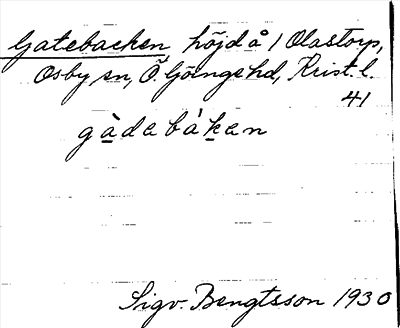 Gatebacken, höjd å 1 Olastorp,
Osby sn, Ö. Göinge hd, Krist. l.
41
gàdabákan
Sigv. Bengtsson 1930